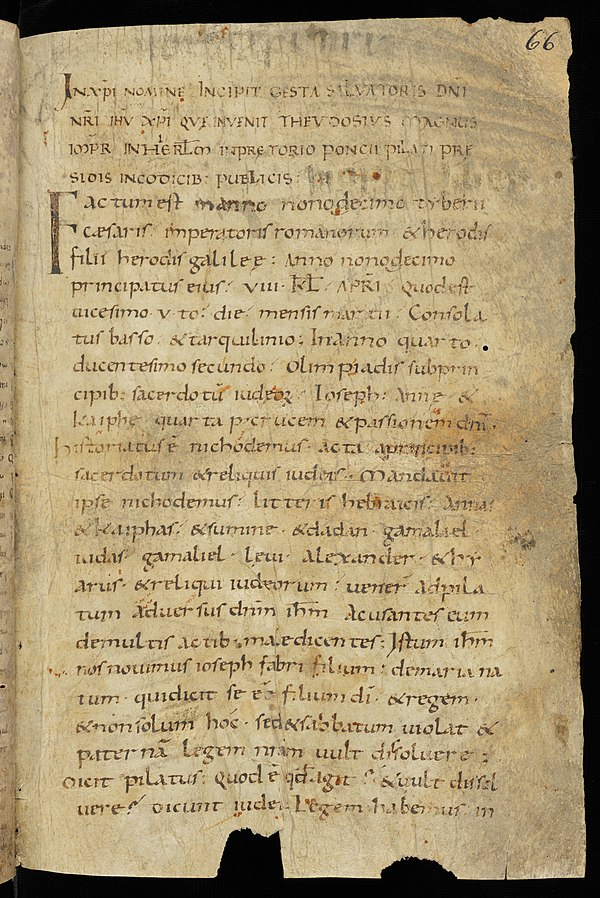 66
IN XPI NOMINE INCIPIT GESTA SALVATORIS DNI
NRI IHV XPI QVE INVENIT THEVDOSIVS MAGNVS
IMPR IN HIERLM IN PRETORIO PONCII PILATI PRE
SIDIS IN CODICIB: PUBLICIS:
Factum est in anno nonodecimo tyberii
cæsaris imperatoris romanorum & herodis
filii herodis galileę: Anno nonodecimo
principatus eius; VIII KL APRI quod est
uicesimo v to die mensis martii. Consola
tus basso & tarquilinio. In anno quarto.
ducentesimo secundo. Olimpiadis sub prin
cipib: sacerdotū iudeor; Ioseph. Anne &
kaiphe. quarta p crucem & passionem dni.
historiatus ē nichodemus. acta a principib:
sacerdotum & reliquis iudeis. Mandauit
ipse nichodemus. litteris hebraicis. Annas
& kaiphas. & summe. & dadan. gamaliel
iudas. gamaliel. leui. alexander. & hy
arus. & reliqui iudeorum: uener ad pila
tum aduersus dnm ihm Acusantes eum
de multis actib. maledicentes: Istum ihm
nos nouimus ioseph fabri filium: de maria na
tum. qui dicit se eē filium di. & regem.
& non solum hoc. sed & sabbatum uiolat &
paternā legem nram uult dissoluere:
Dicit pilatus: Quod ē qd agit? & uult dissol
uere? Dicunt iudei. Legem habemus in